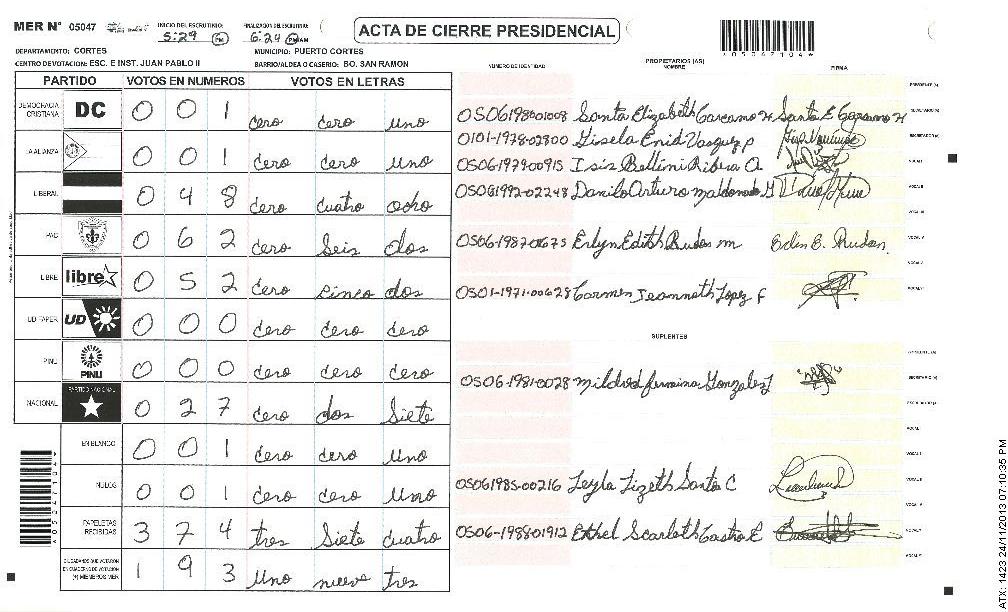 MER Nº 05047 INICIO DEL ESCRUTINIO: 5:29 PM FINALIZACIÓN DEL ESCRUTINIO: 6:24 PM AM
ACTA DE CIERRE PRESIDENCIAL
*05067104*
DEPARTAMENTO: CORTES MUNICIPIO: PUERTO CORTES
CENTRO DE VOTACION: ESC. E INST. JUAN PABLO II BARRIO/ALDEA O CASERIO: BO. SAN RAMON
PARTIDO VOTOS EN NUMEROS VOTOS EN LETRAS
DEMOCRACIA CRISTIANA DC 0 0 1 cero cero uno
LA ALIANZA 0 0 1 cero cero uno
LIBERAL 0 4 8 cero cuatro ocho
PAC 0 6 2 cero seis dos
LIBRE libre 0 5 2 cero cinco dos
UD FAPER UD 0 0 0 cero cero cero
PINU PINU 0 0 0 cero cero cero
NACIONAL PARTIDO NACIONAL 0 2 7 cero dos siete
EN BLANCO 0 0 1 cero cero uno
NULOS 0 0 1 cero cero uno
PAPELETAS RECIBIDAS 3 7 4 tres siete cuatro
CIUDADANOS QUE VOTARON EN CUADERNO DE VOTACION (+) MIEMBROS MER 1 9 3 uno nueve tres
NUMERO DE IDENTIDAD PROPIETARIOS (AS) NOMBRE FIRMA
PRESIDENTE (A)
0506198001008 Santa Elizabeth Carcamo H Santa E Carcamo H SECRETARIO (A)
0101-1978-02800 Gisela Enid Vasquez P
0506-1979-00915 Isis Bellini Ribera A. VOCAL I
05061992-02248 Danilo Arturo Maldonado G VOCAL II
VOCAL III
0506-1987-01675 Erlyn Edith Rudas m VOCAL IV
VOCAL V
0501-1971-00628 Carmen Jeanneth Lopez F VOCAL VI
SUPLENTES
PRESIDENTE (A)
0506-1981-0028 Mildred Gonzales SECRETARIO (A)
VOCAL I
05061985-00216 Leyla Lizeth Santa C
0506-1988-01912 Ethel Scarleth Castro E
*05067104*
ATX: 1423 24/11/2013 07:10:35 PM